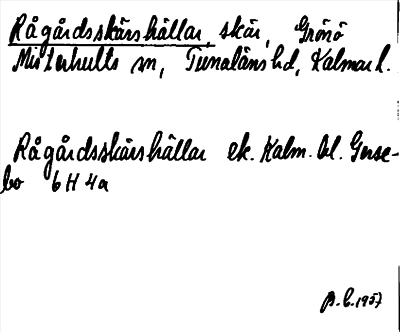 Rågårdsskärshällar, skär, Grönö
Misterhults sn, Tunaläns hd, Kalmar l.
Rågårdsskärshällar ek. Kalm. bl. Guse-
bo 6H 4a
1957